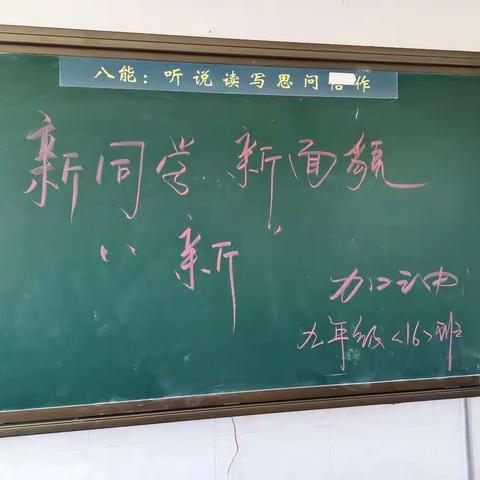 八能：听说读写思问 作
新同学 新面貌
“新”
加油
九年级<16>班